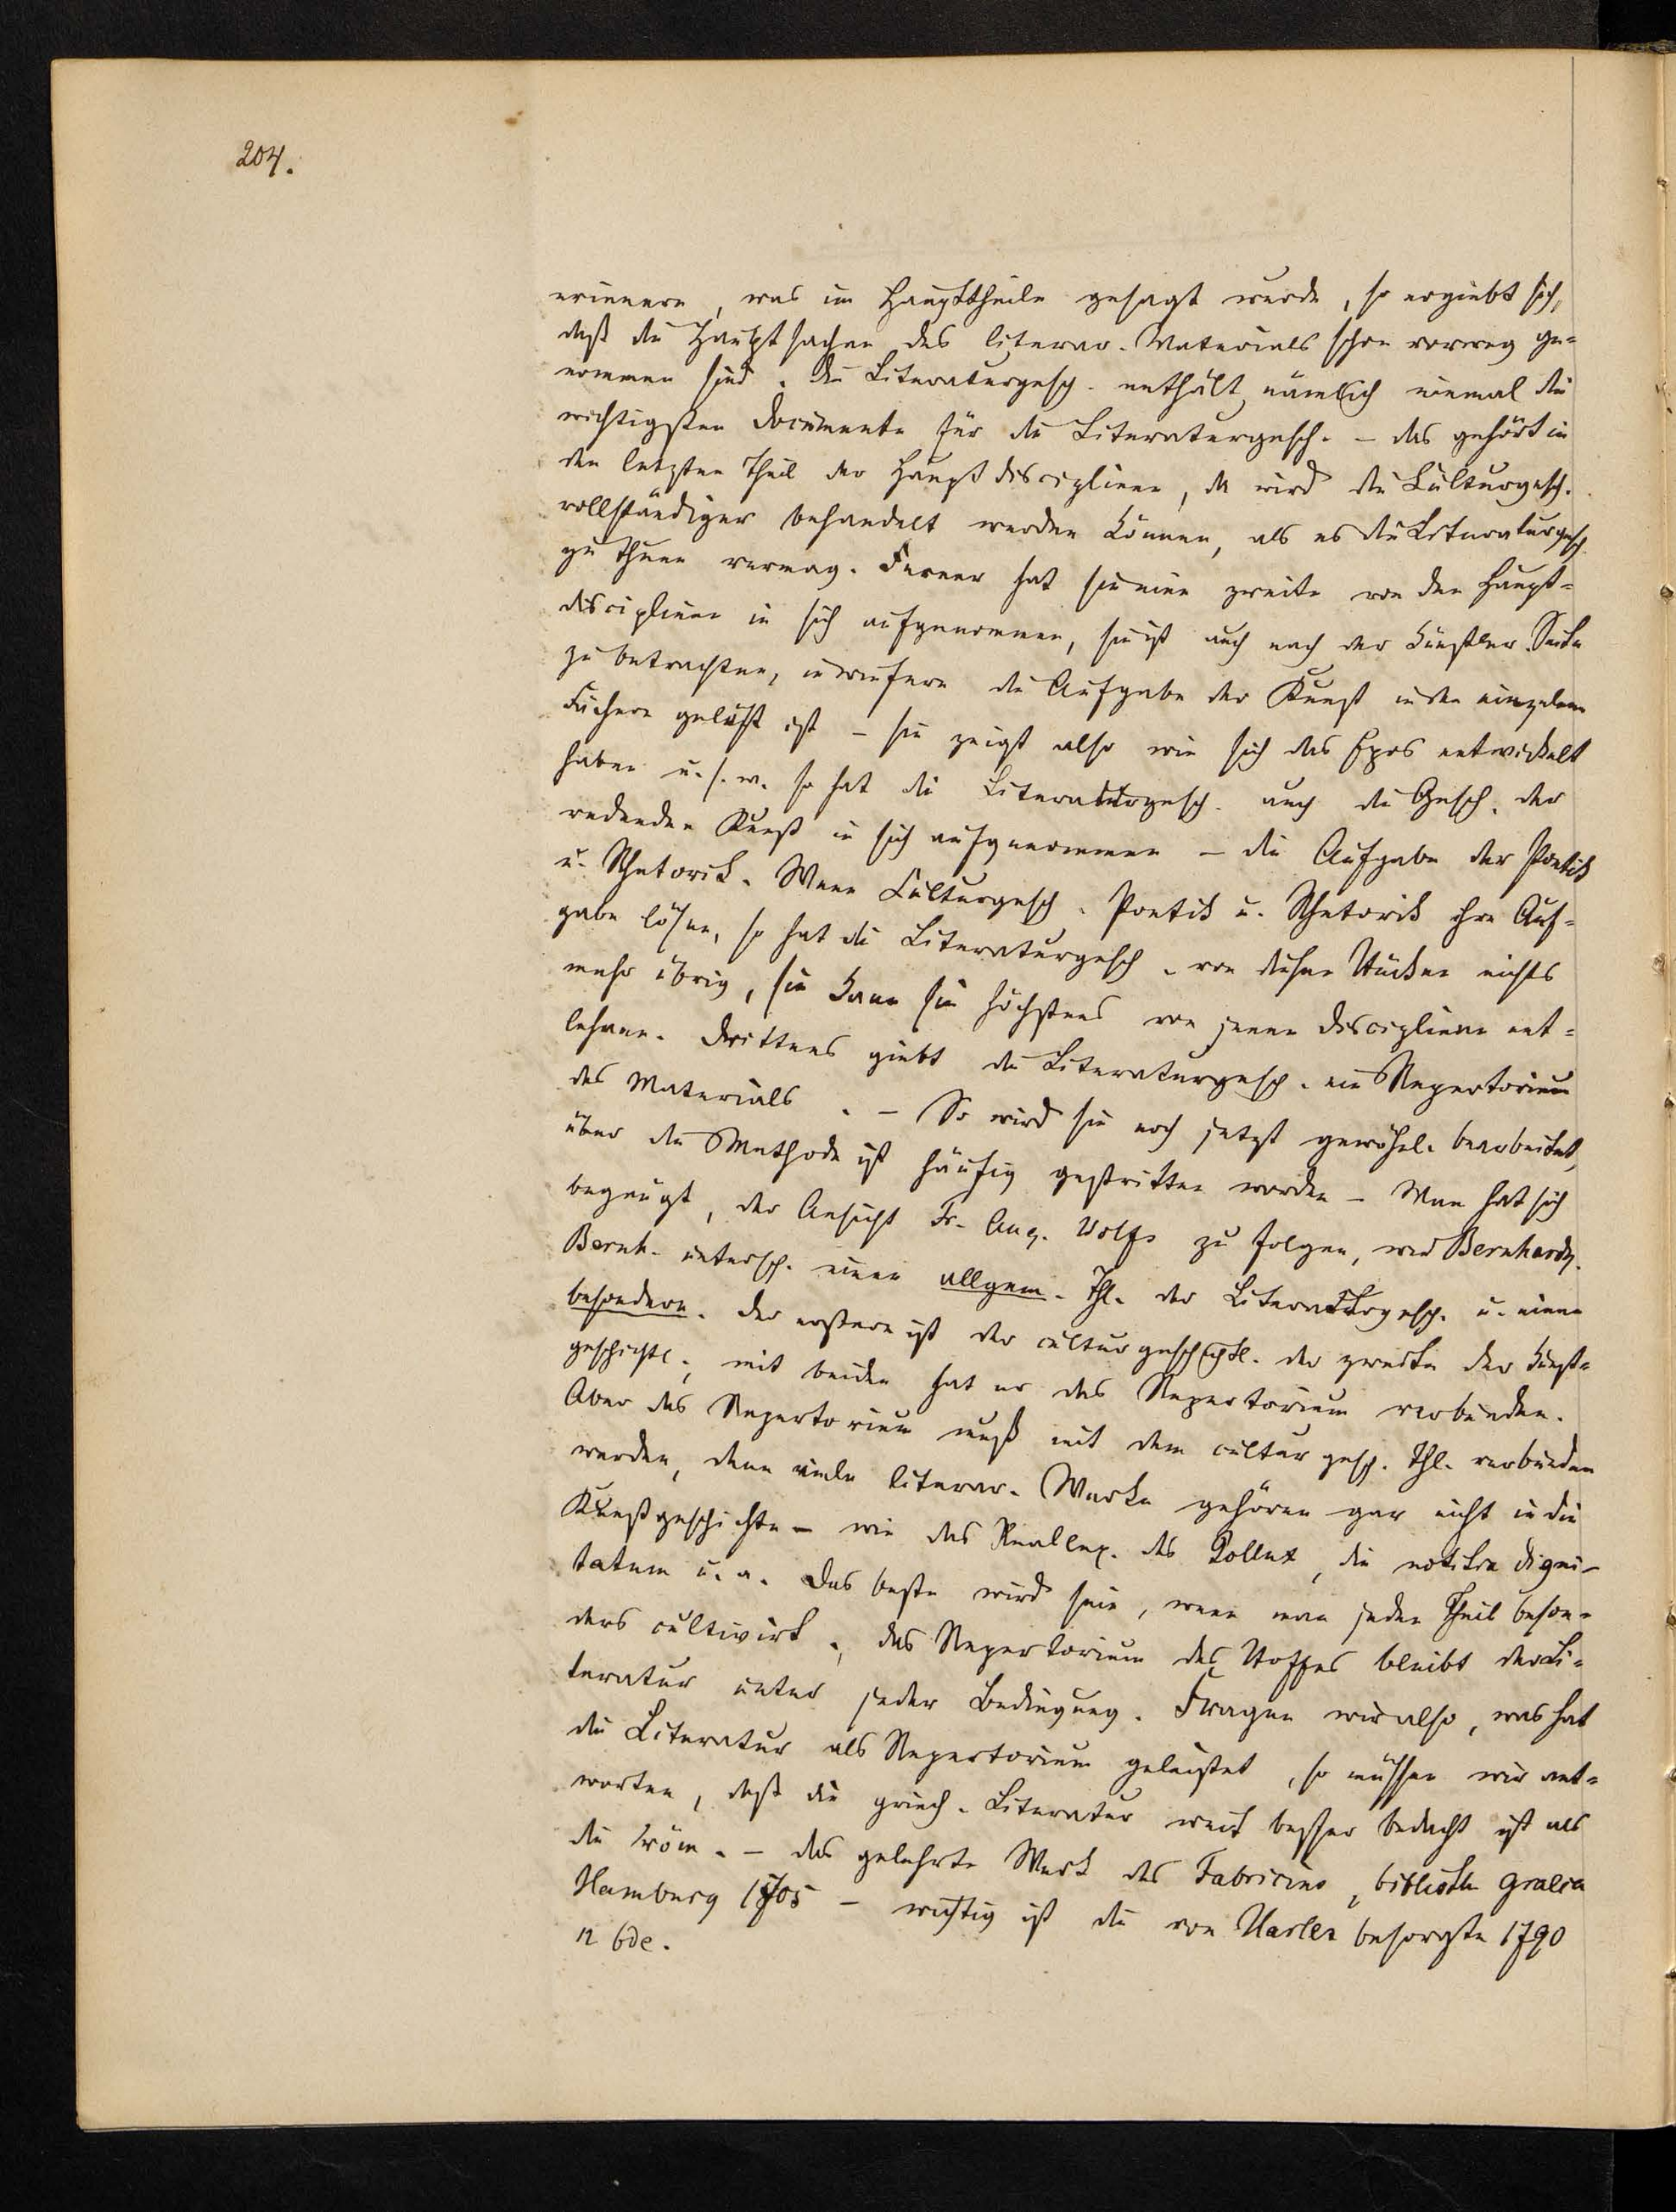 204.
erinnern, was im Haupttheile gesagt wurde, so ergiebt sich,
daß die Hauptsachen des literar. Materials schon vorweg ge-
nommen sind. die Literaturgesch. enthält nämlich einmal die
wichtigsten Documente für die Literaturgesch. – das gehört in
den letzten Theil der Hauptdisciplinen, da wird die Culturgesch.
vollständiger behandelt werden können, als es die Literaturgesch.
zu thun vermag. Ferner hat sie eine zweite von den Haupt-
disciplinen in sich aufgenommen, sie ist auch nach der künstler. Seite
zu betrachten, inwiefern die Aufgabe der Kunst in den einzelnen
Fächern gelöst ist – sie zeigt also wie sich das Epos entwickelt
haben u. s. w. so hat die Literaturgesch. auch die Gesch. der
redenden Kunst in sich aufgenommen – die Aufgabe der Poetik
u. Rhetorik. Wenn Culturgesch. Poetik u. Rhetorik ihre Auf-
gabe lösen, so hat die Literaturgesch. von diesen Stücken nichts
mehr übrig, sie kann sie höchstens von jenen Disciplinen ent-
lehnen. Drittens giebt die Literaturgesch. ein Repertorium
des Materials. – So wird sie noch jetzt gewöhnl. bearbeitet,
über die Methode ist häufig gestritten worden – Man hat sich
begnügt, der Ansicht Fr. Aug. Wolfs zu folgen, wie Bernhardy.
Bernh. untersch. einen allgem. Thl. der Literaturgesch. u. einen
besondern. der erstere ist der culturgeschichtl. der zweite der kunst-
geschichtl., mit beiden hat er das Repertorium verbunden.
Aber das Repertorium muß mit dem culturgesch. Thl. verbunden
werden, denn viele literar. Werke gehören gar nicht in die
Kunstgeschichte – wie das Reallex. des Pollux, die notitia digni-
tatum u. a. das beste wird sein, wenn man jeden Theil beson-
ders cultivirt, das Repertorium des Stoffes bleibt der Li-
teratur unter jeder Bedingung. Fragen wir also, was hat
die Literatur als Repertorium geleistet, so müssen wir ant-
worten, daß die griech. Literatur weit besser bedacht ist als
die röm. – das gelehrte Werk des Fabricius, biblioth graeca
Hamburg 1705 – wichtig ist die von Harles besorgte 1790
12 bde.